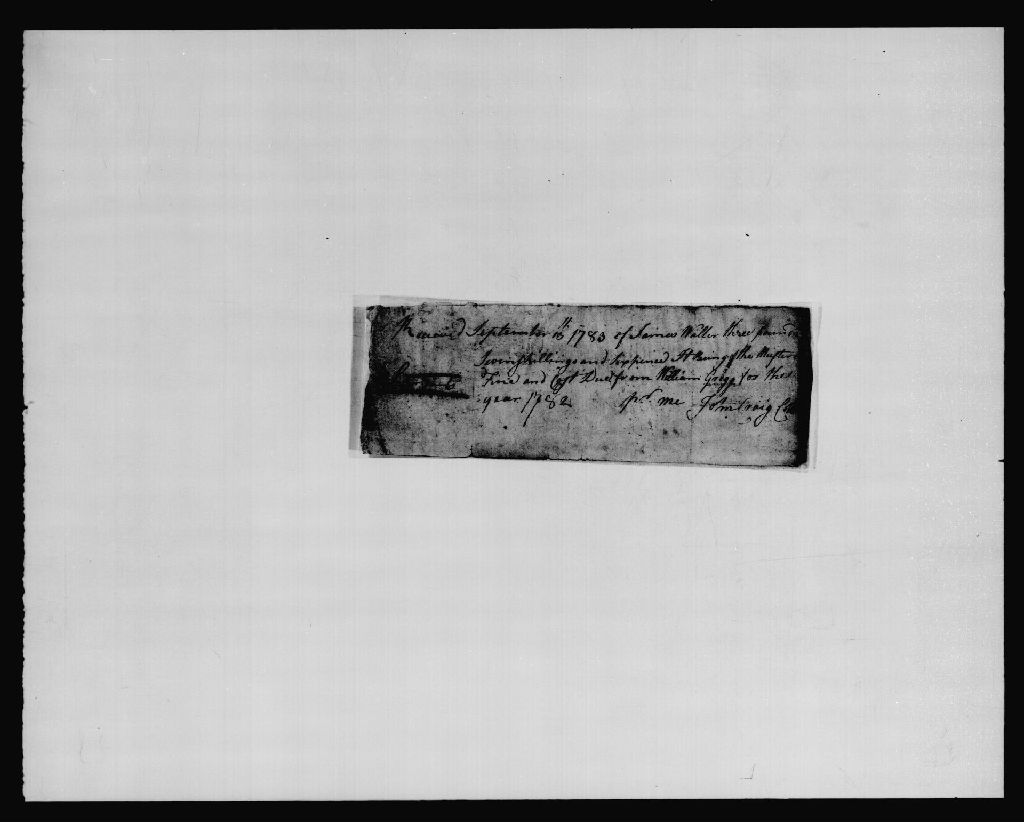 Received September 16th 1783 of James Waller three pounds
Seven shillings and Sixpence It being of the Muster
Fine and Cost Due from William Grigg for the
year 1782 pr me John Craig